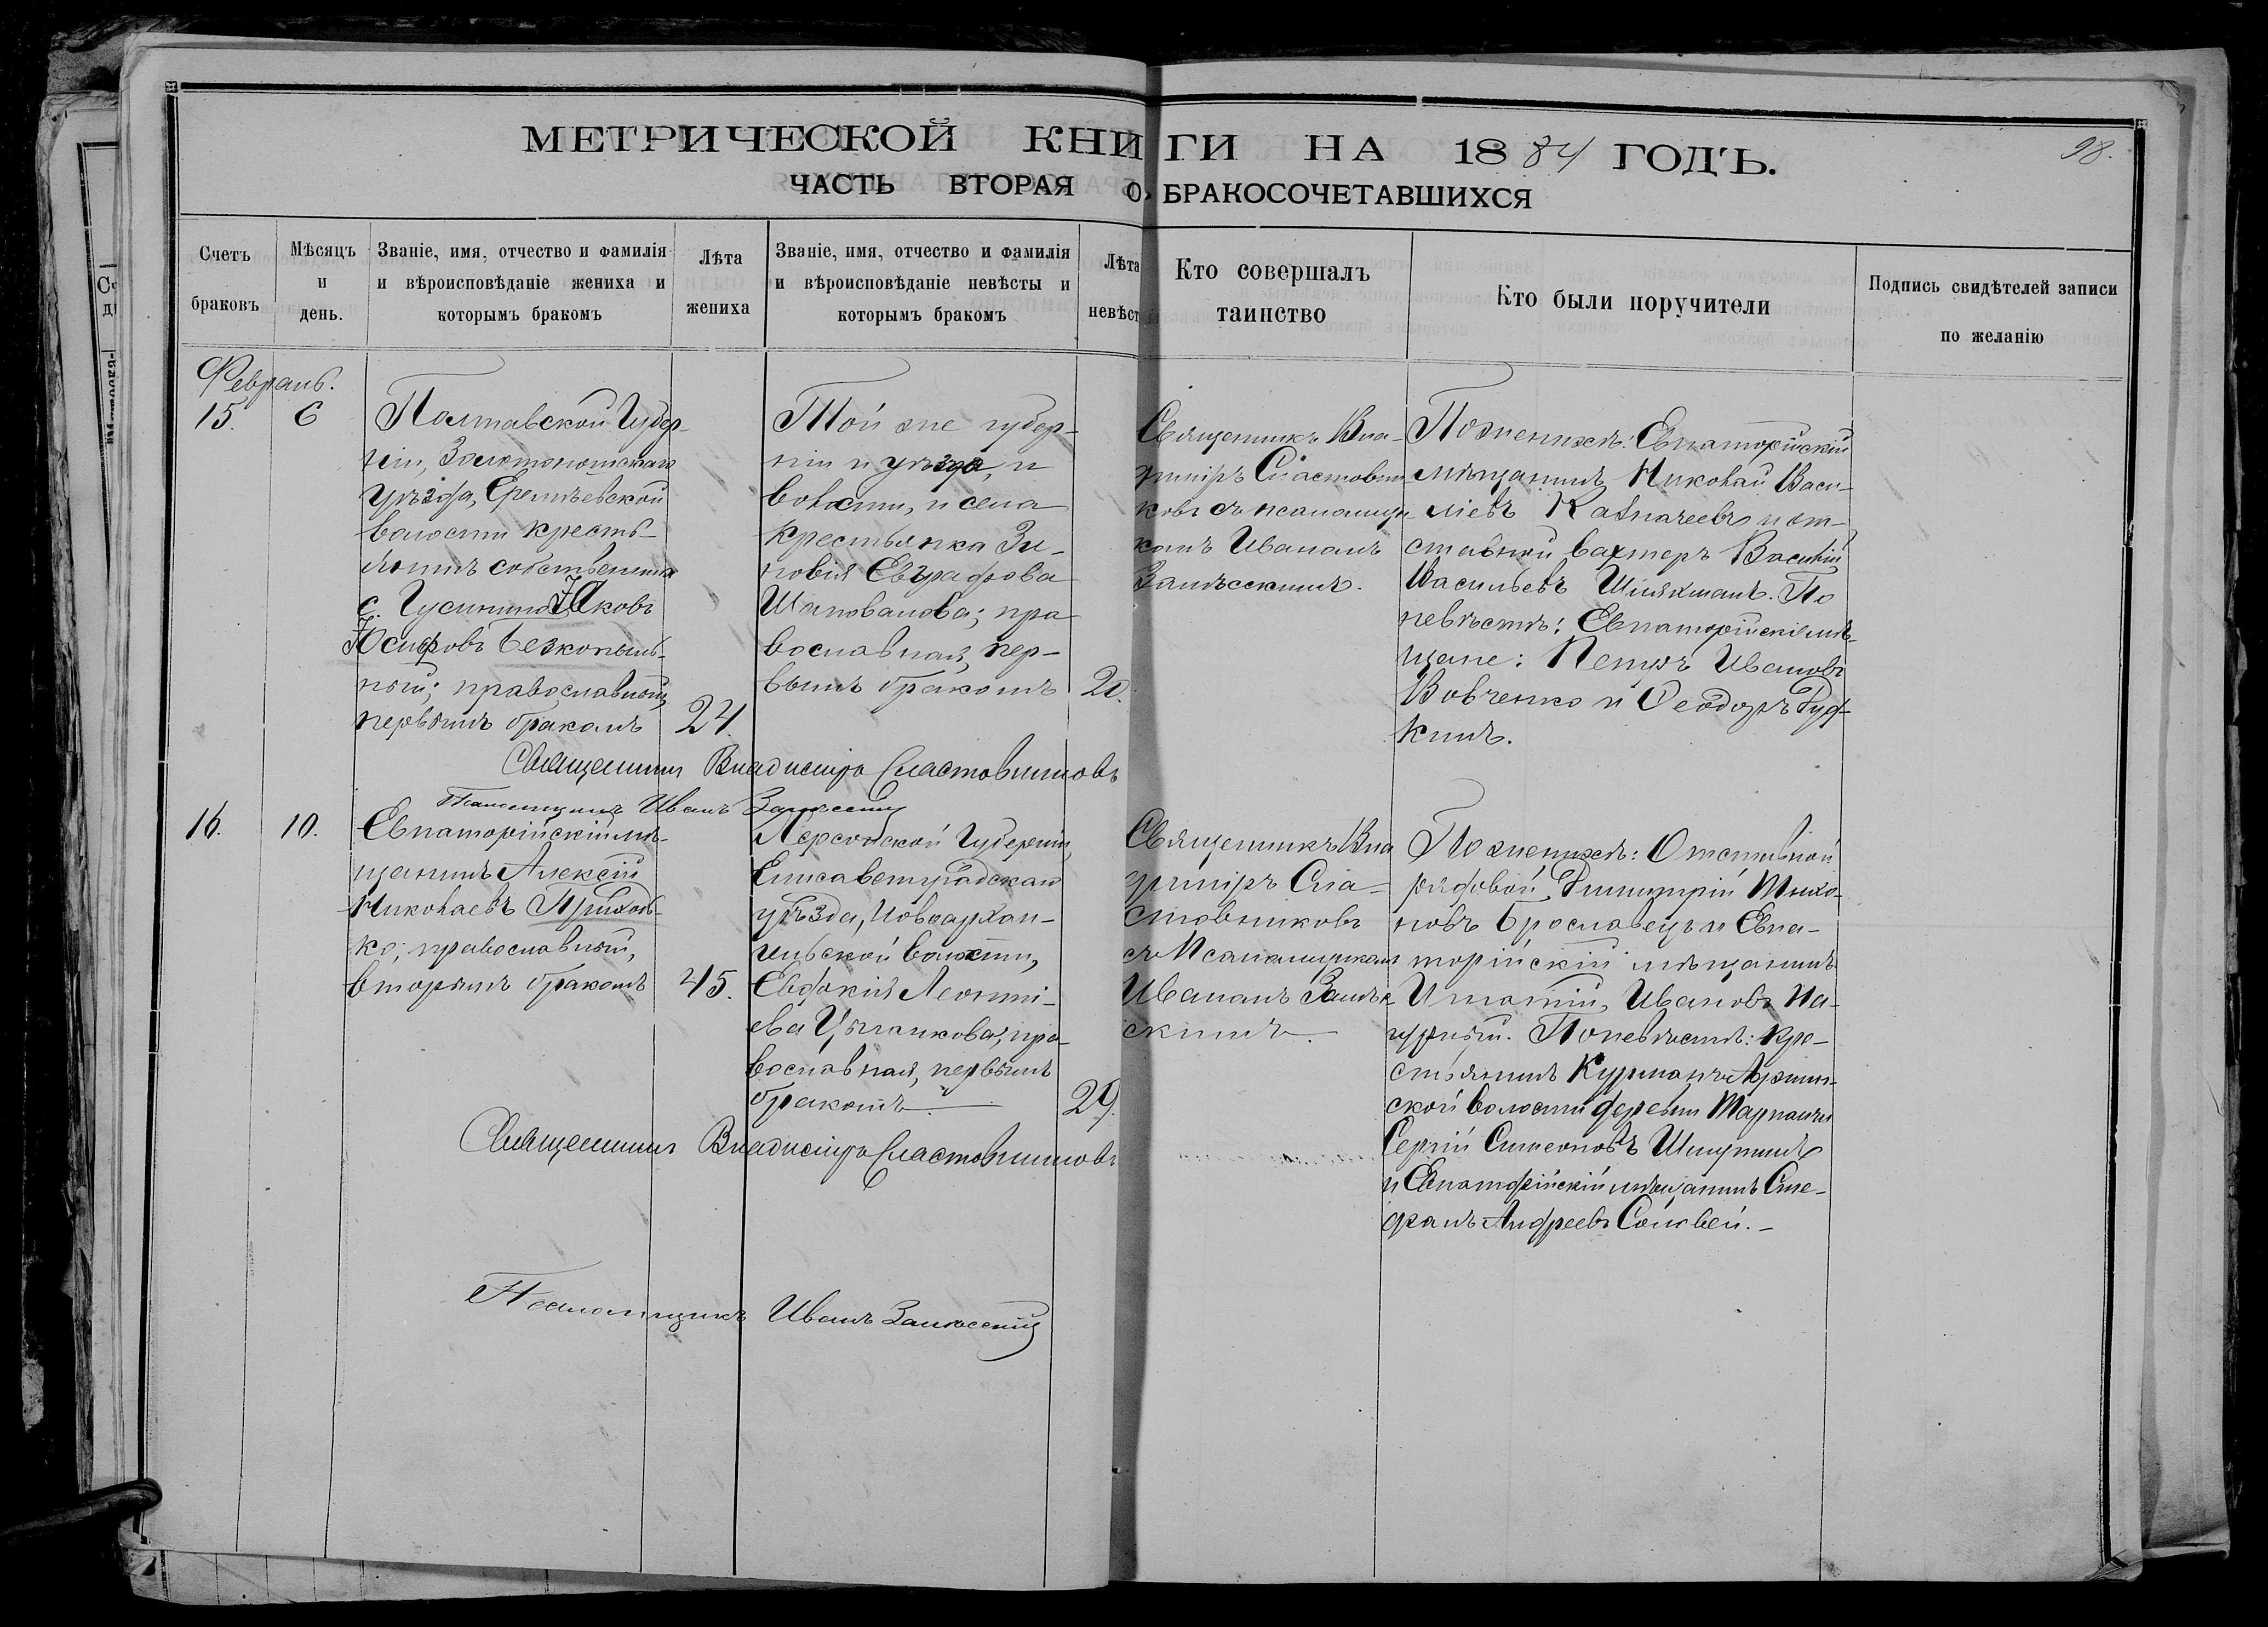 МЕТРИЧЕСКОЙ КНИГИ НА 1884 ГОДЪ.
98.
ЧАСТЬ ВТОРАЯ О БРАКОСОЧЕТАВШИХСЯ
Счетъ
браковъ
Мѣсяцъ
и
день.
Званіе, имя, отчество и фамилія
и вѣроисповѣданіе жениха и
которымъ бракомъ
Лѣта
жениха
Званіе, имя, отчество и фамилія
и вѣроисповѣданіе невѣсты и
которымъ бракомъ
Лѣта
невѣст
Кто совершалъ
таинство
Кто были поручители
Подпись свидѣтелей записи
по желанію
Февраль.
15.
6
Полтавской Губер-
ніи, Золотоношскаго
Уѣзда, Еремѣевской
волости кресть-
янинъ собственникъ
с. Гусинаго Іаковъ
Іосифовъ Безкопыль-
ный; православный,
первымъ бракомъ
24.
Той же губер-
ніи и уѣзда, и
волости, и села
крестьянка Зи-
новія Евграфова
Шаповалова; пра
вославная, пер-
вымъ бракомъ
20.
Священникъ Вла-
диміръ Сластовни
ковъ съ псаломщи
комъ Иваномъ
Залѣсскимъ.
По женихѣ: Евпаторійскій
мѣщанинъ Николай Васи-
ліевъ Казначеевъ и от-
ставной вахтеръ Василій
Васильевъ Шляхманъ. По
невѣстѣ: Евпаторійскіе мѣ-
щане: Петръ Ивановъ
Вовченко и Ѳеодоръ Дуд-
кинъ.
Священникъ Владиміръ Сластовниковъ
Псаломщикъ Иванъ Залѣсскій
16.
10.
Евпаторійскій мѣ-
щанинъ Алексій
Николаевъ Приходь-
ко; православный,
вторымъ бракомъ
45.
Херсонской Губерніи,
Елисаветградскаго
уѣзда, Новоархан-
гельской волости,
Евдокія Леонти-
ева Цыганкова, пра-
вославная, первымъ
бракомъ
29.
Священникъ Вла
диміръ Сла-
стовниковъ
съ Псаломщикомъ
Иваномъ Залѣс
скимъ.
По женихѣ: Отставной
рядовой Димитрій Тихо-
новъ Брославецъ и Евпа-
торійскій мѣщанинъ
Игнатій Ивановъ На-
гурный. По невѣстѣ: Кре-
стьянинъ Курманъ-Аджин-
ской волости деревни Тарханчи
Сергій Симеоновъ Шишкинъ
и Евпаторійскій мѣщанинъ Сте-
фанъ Андреевъ Соловей.
Священникъ Владиміръ Сластовниковъ
Псаломщикъ Иванъ Залѣсскій